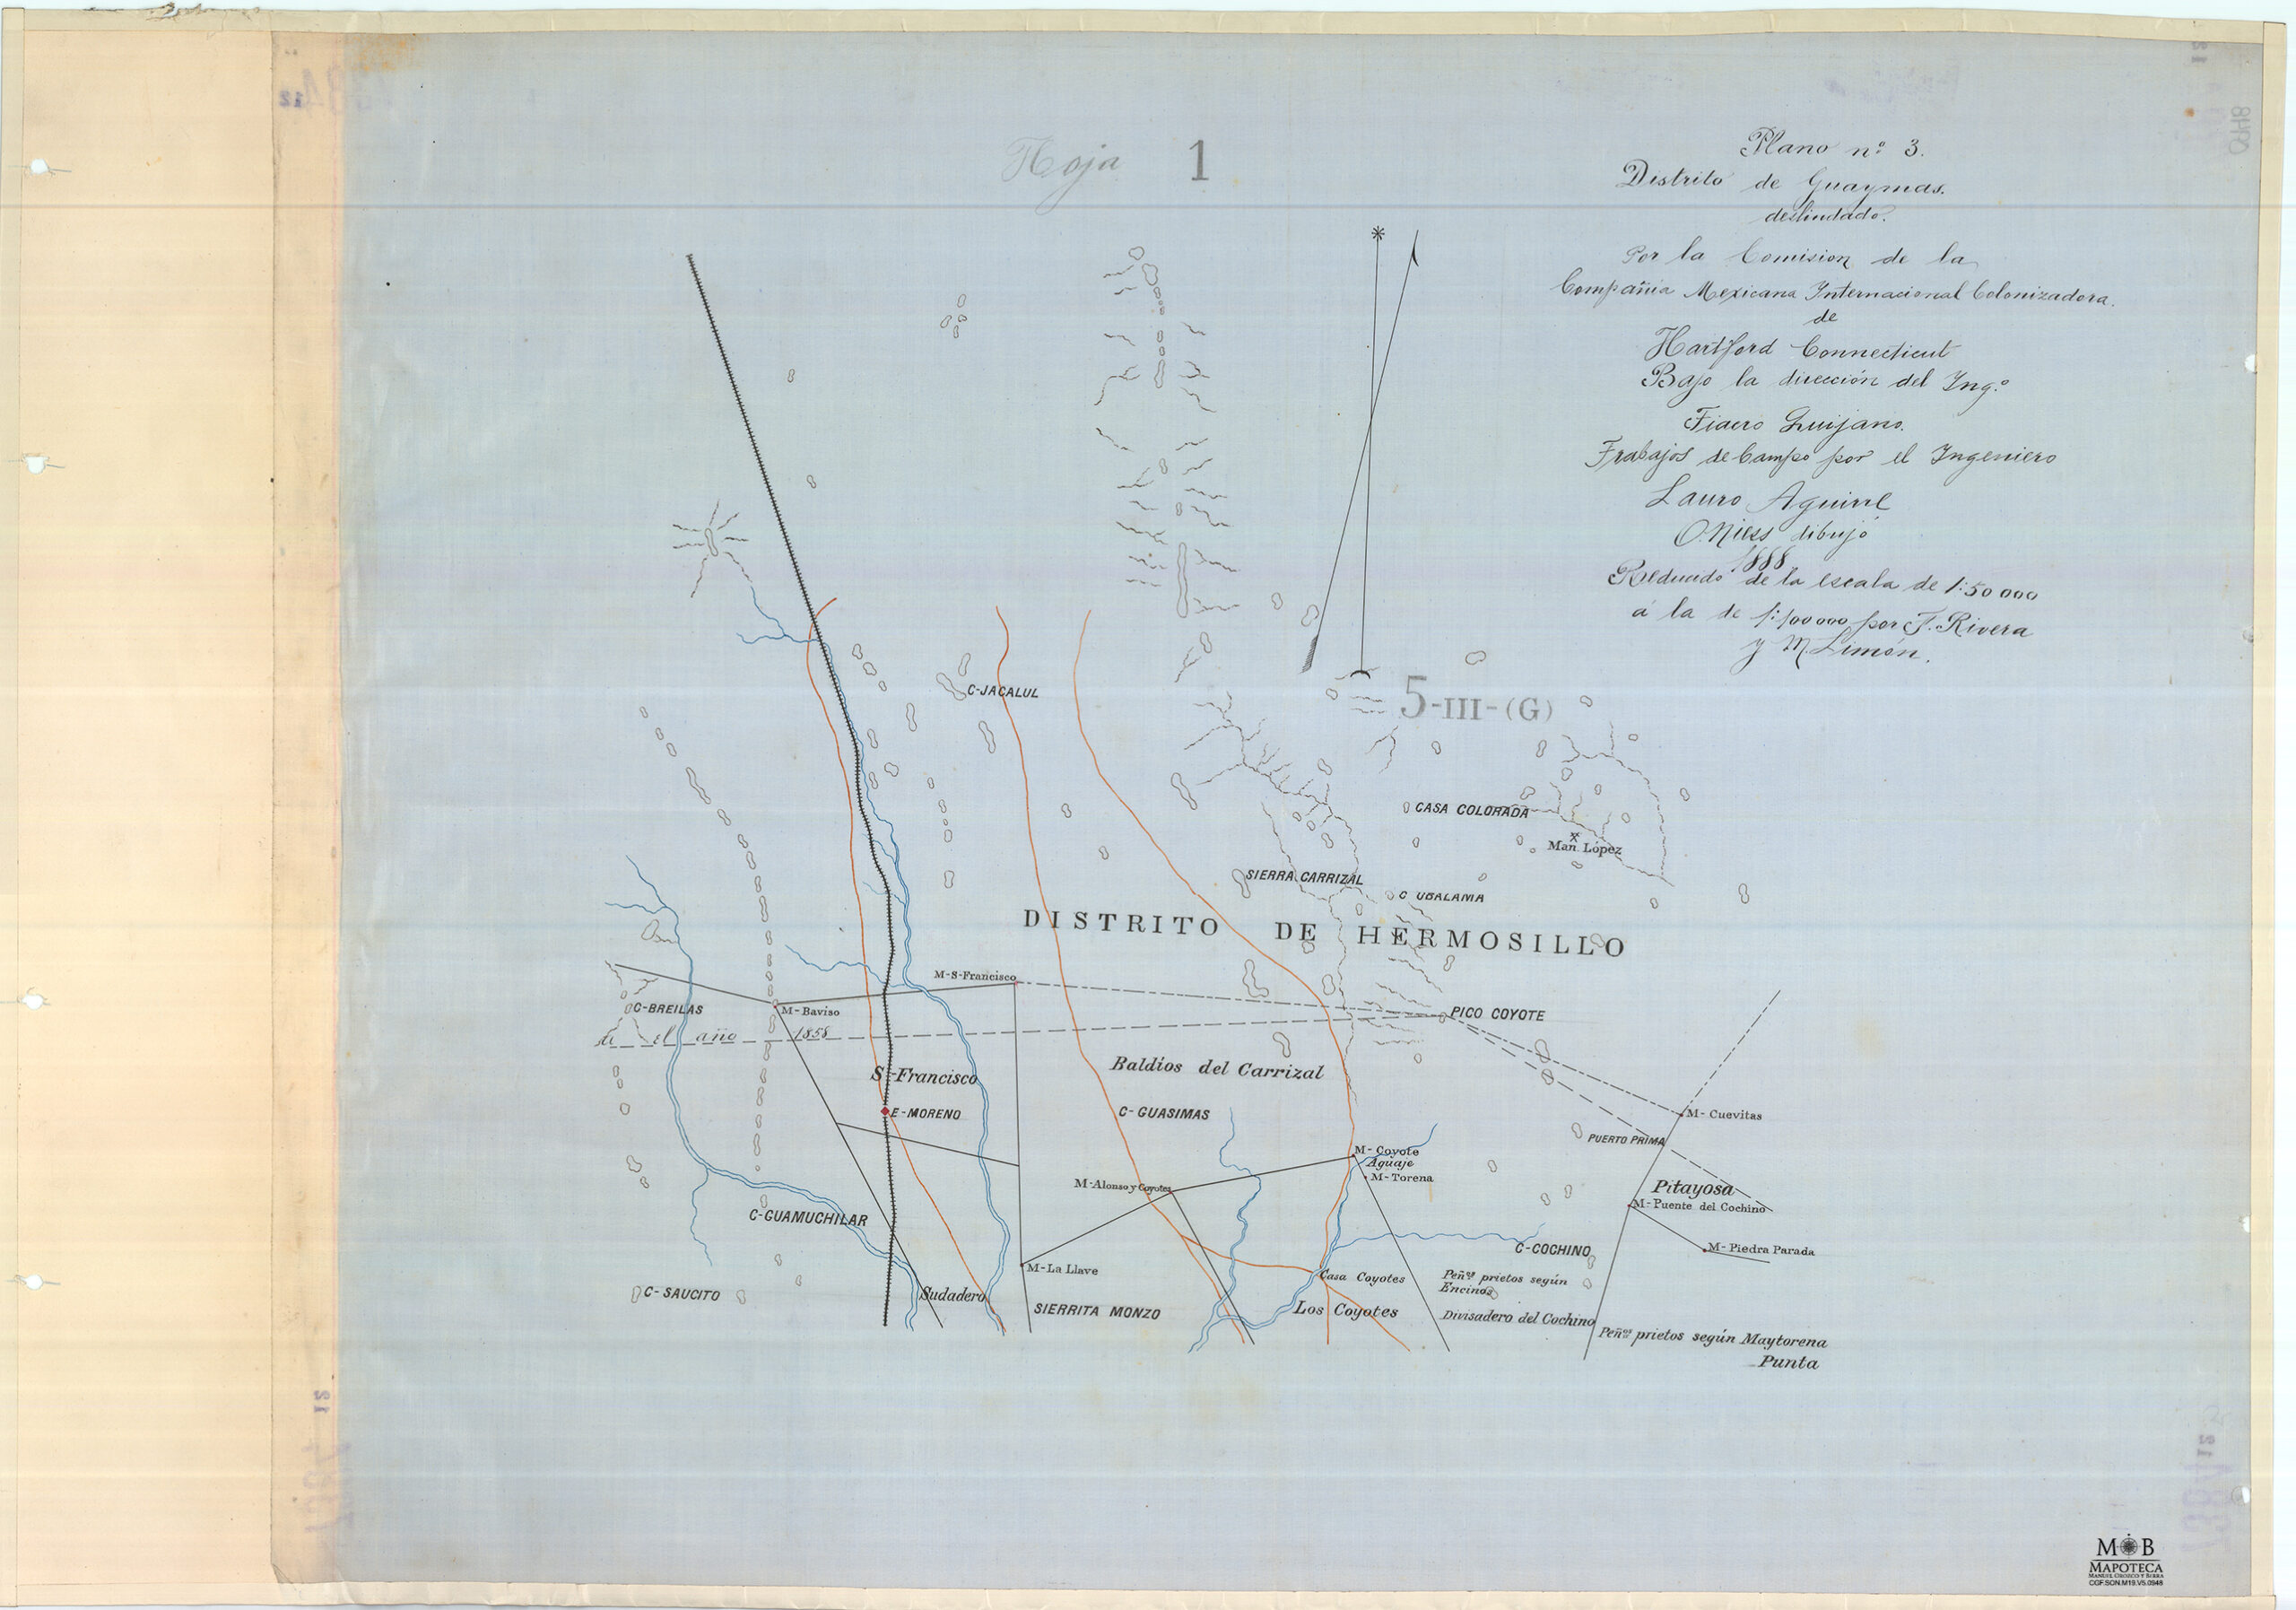 Hoja 1
Plano nº 3.
Distrito de Guaymas.
deslindado.
Por la Comision de la
Compañia Mexicana Internacional Colonizadora.
de
Hartford Connecticut
Bajo la dirección del Ing.º
Fiacro Quijano.
Trabajos de Campo por el Ingeniero
Lauro Aguirre
O. Niess dibujó
1888.
Reducido de la escala de 1:50 000
á la de 1:100 000 por F. Rivera
y M. Limón.
5-III-(G)
C-JACALUL
CASA COLORADA
Man. López
SIERRA CARRIZAL
C UBALAMA
DISTRITO DE HERMOSILLO
M-S-Francisco
C-BREILAS
M-Baviso
PICO COYOTE
el año 1858
S-Francisco
Baldíos del Carrizal
E-MORENO
C-GUASIMAS
M-Cuevitas
PUERTO PRIMA
M-Coyote
Aguaje
M-Torena
M-Alonso y Coyotes
Pitayosa
M-Puente del Cochino
C-GUAMUCHILAR
C-COCHINO
M-Piedra Parada
M-La Llave
Casa Coyotes
Peñ.os prietos según
Encinos
C-SAUCITO
Sudadero
SIERRITA MONZO
Los Coyotes
Divisadero del Cochino
Peñ.os prietos según Maytorena
Punta
0948
M B
MAPOTECA
MANUEL OROZCO Y BERRA
CGF.SON.M19.V5.0948